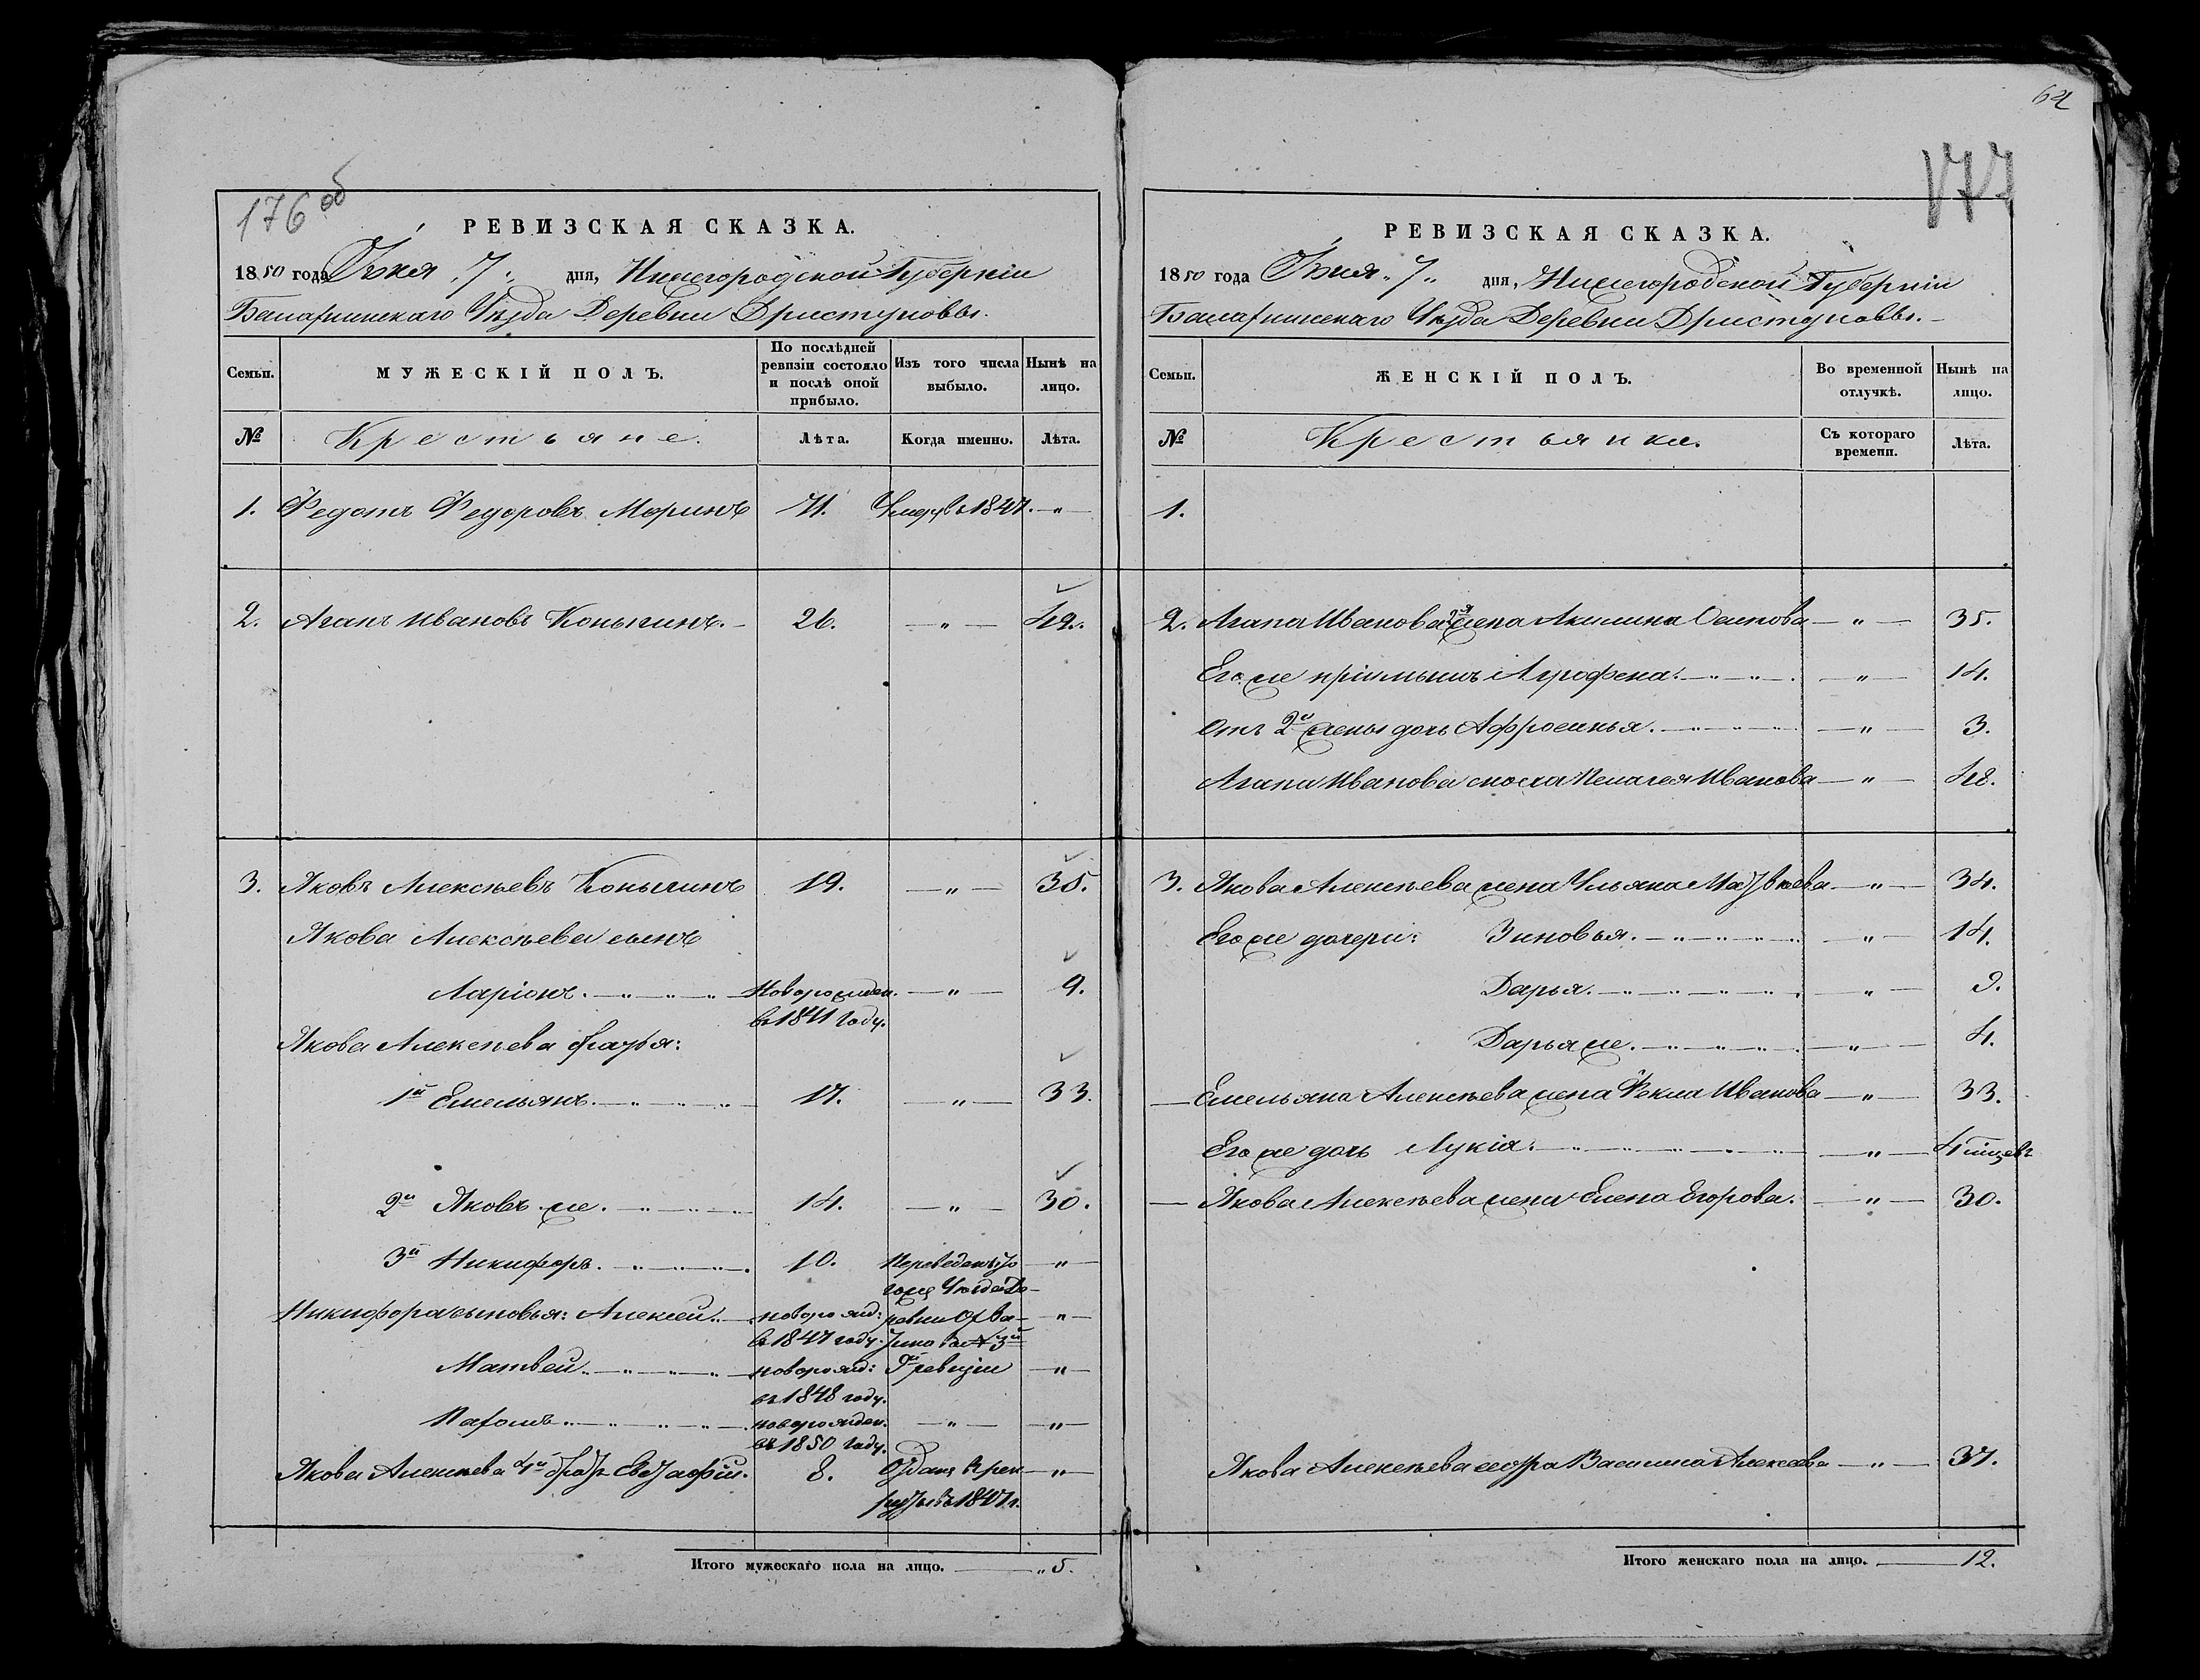 176 об
РЕВИЗСКАЯ СКАЗКА.
1850 года Іюня „7„ дня, Нижегородской Губерніи
Балахнинскаго Уѣзда Деревни Дристуновы.
Семьи. МУЖЕСКІЙ ПОЛЪ. По послѣдней ревизіи состояло и послѣ оной прибыло. Изъ того числа выбыло. Нынѣ на лицо.
№ Крестьяне. Лѣта. Когда именно. Лѣта.
1. Федотъ Федоровъ Моринъ 71. Умеръ въ 1847. — „ —
2. Агапъ Ивановъ Коныгинъ. 26. — „ — 42.
3. Яковъ Алексѣевъ Коныгинъ 19. — „ — 35.
Якова Алексѣева сынъ
Ларіонъ. Новорожден. — „ — 9.
въ 1841 году.
Якова Алексѣева братья:
1й Емельянъ. 17. — „ — 33.
2й Яковъ же. 14. — „ — 30.
3й Никифоръ. 10. Переведенъ то — „ —
гожъ Уѣзда Де-
Никифора сыновья: Алексей. новорожд: ревни — „ —
въ 1847 году. № 3й
Матвей. новорожд: 9й ревизіи — „ —
въ 1848 году.
Пахомъ. новорожден. — „ — — „ —
въ 1850 году.
Якова Алексѣева 4й братъ Евстафій. 8. Отданъ в рек — „ —
руты въ 1847 г.
Итого мужескаго пола на лицо. „ 5.
64
177
РЕВИЗСКАЯ СКАЗКА.
1850 года Іюня „7„ дня, Нижегородской Губерніи
Балахнинскаго Уѣзда Деревни Дристуновы.
Семьи. ЖЕНСКІЙ ПОЛЪ. Во временной отлучкѣ. Нынѣ на лицо.
№ Крестьянки. Съ котораго времени. Лѣта.
1.
2. Агапа Иванова 2я жена Акилина Осипова — „ — 35.
Его же пріимышъ Агрофена. — „ — 14.
Отъ 2й жены дочь Афросинья. — „ — 3.
Агапа Иванова сноха Пелагея Иванова — „ — 48.
3. Якова Алексѣева жена Ульяна Матвѣева — „ — 34.
Его же дочери: Зиновья. — „ — 14.
Дарья. — „ — 9.
Дарья же. — „ — 4.
Емельяна Алексѣева жена Фекла Иванова — „ — 33.
Его же дочь Лукія. — „ — 4 мѣсяц.
Якова Алексѣева жена Елена Егорова. — „ — 30.
Якова Алексѣева сестра Василиса Алексеева — „ — 37.
Итого женскаго пола на лицо. 12.